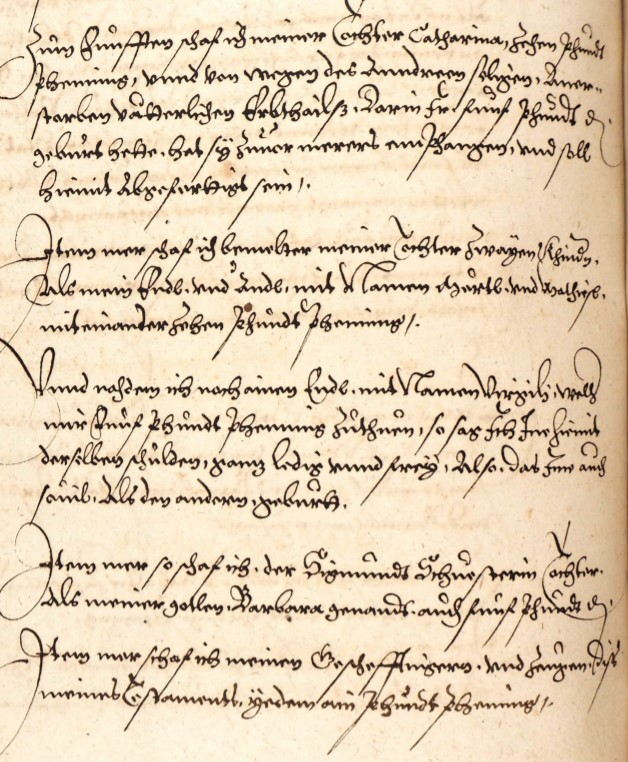 Zum Funfften schaf ich meiner Tochter Catharina, zehen Phundt
Phenning, vnnd von wegen des Anndreen seligen, Aner-
storben vätterlichen Erbthails, Darin Ir funf Phundt d
geburt hette, hat sy zuuor merers emphangen, vnd soll
hiemit Abgeferttigt sein,.
Item mer schaf ich bemelter meiner Tochter zwayen Khindn,
Als mein Endl, vnd Andl, mit Namen vnd Mathiesl,
miteinander zehen Phundt Phenning,.
Vnnd nachdem ich noch ainen Endl, mit Namen Virgilj, welh
mir Funf Phundt Phenning zuthuen, so sag Ich Ine hiemit
derselben schulden, gantz ledig vnnd freÿ, Also, das Ime auch
souil, Als den andern, geburtt.
Item mer so schaf ich, der Sigmundt Schuesterin Tochter,
Als meiner gotten, Barbara genandt, auch funf Phundt d
Item mer schaf ich meinen Gescheffthigern, vnd Zeugen, diss
meines Testaments, yedem ain Phundt Phenning,.